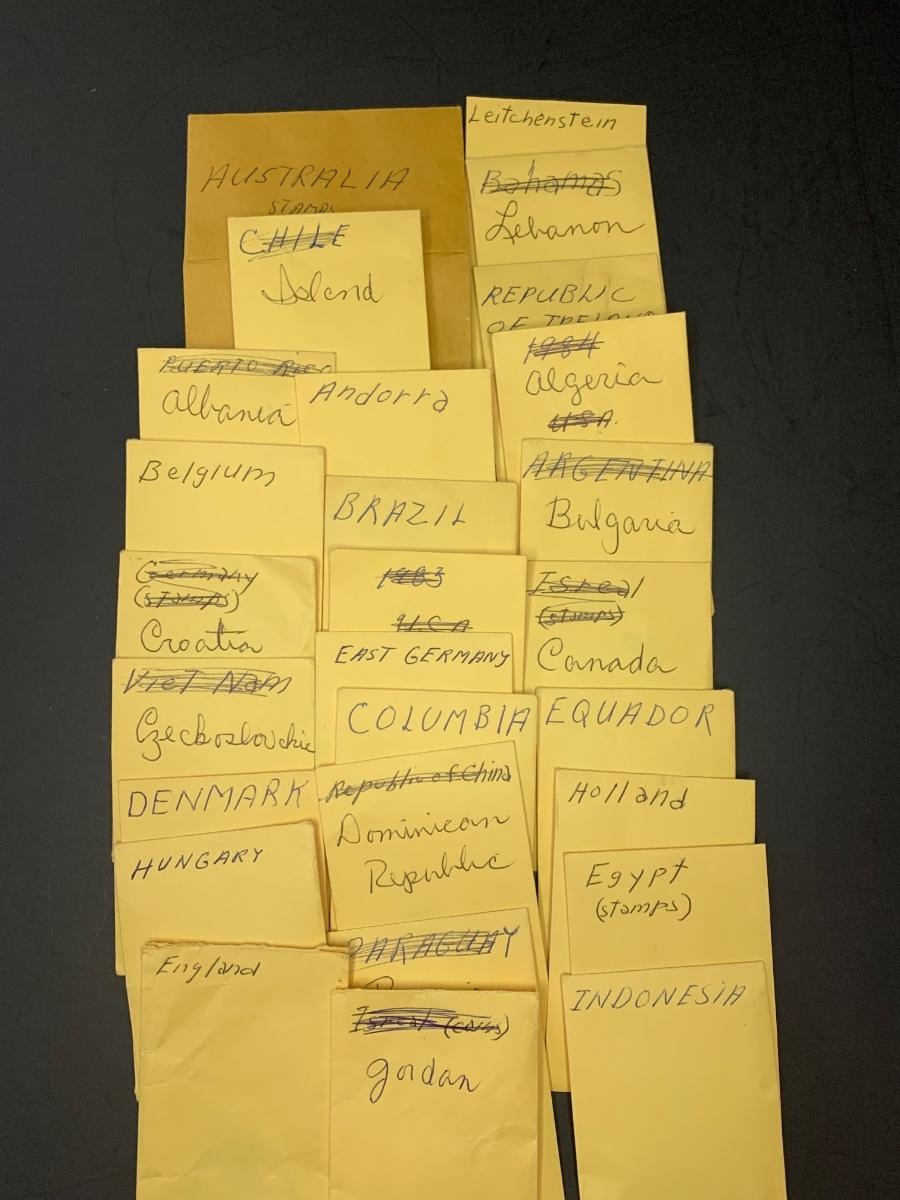 Leitchenstein
AUSTRALIA
STAMPS
Bahamas
Lebanon
CHILE
Island
REPUBLIC
OF IRELAND
1984
Algeria
USA.
PUERTO RICO
Albania
Andorra
Belgium
ARGENTINA
Bulgaria
BRAZIL
Germany
(stamps)
Croatia
1983
U.S.A
Isreal
(stamps)
Canada
EAST GERMANY
Viet Nam
Czeckoslovckie
COLUMBIA
EQUADOR
DENMARK
Republic of China
Dominican
Republic
Holland
HUNGARY
Egypt
(stamps)
PARAGUAY
England
INDONESIA
Isreal (coins)
Jordan